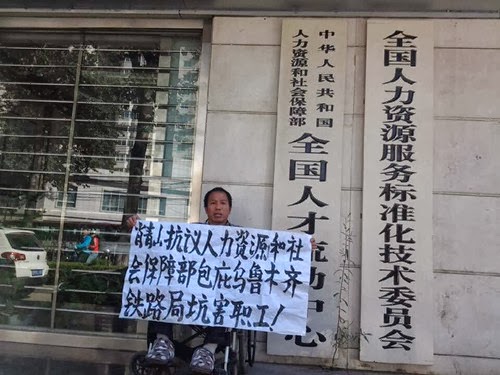 全国人力资源服务标准化技术委员会
中华人民共和国
人力资源和社会保障部
全国人才流动中心
肖青山抗议人力资源和社
会保障部包庇乌鲁木齐
铁路局坑害职工!